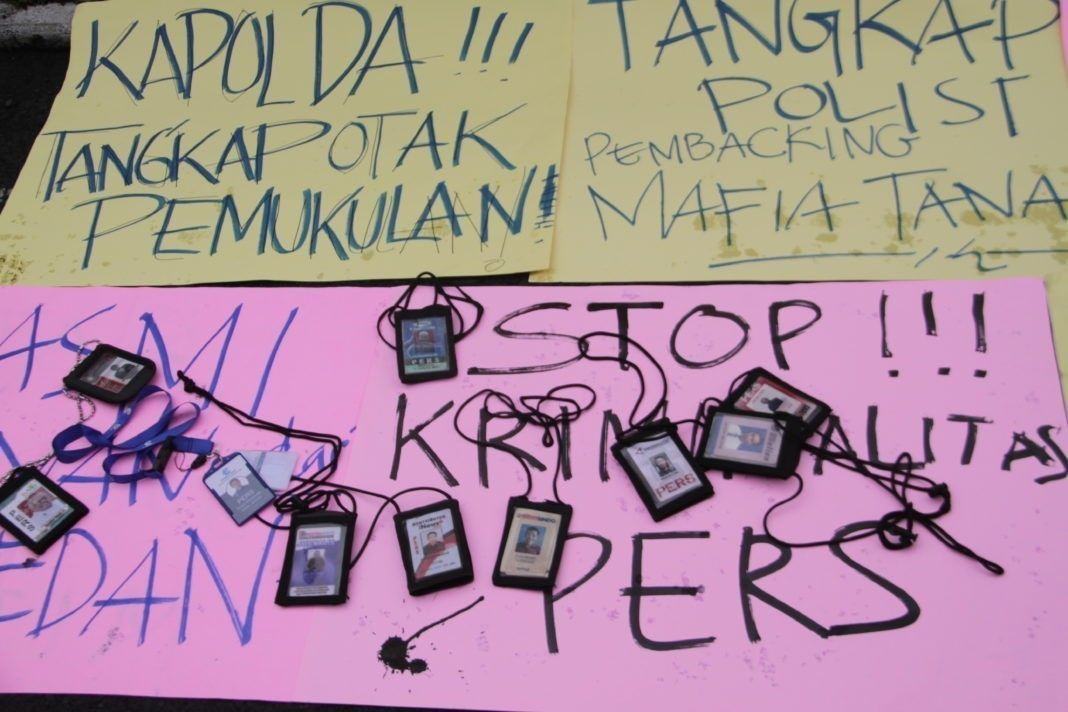 KAPOLDA !!!
TANGKAP OTAK
PEMUKULAN!!
TANGKAP
POLISI
PEMBACKING
MAFIA TANA
ASMI
EDAN
STOP !!!
KRIMINALITAS
PERS
PERS
PERS
PERS